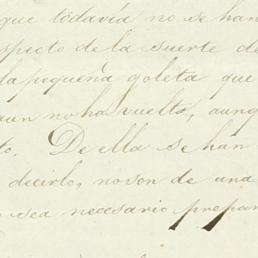 que todavía no se han
specto de la suerte de
la pequeña goleta que
aun no ha vuelto, aunq
to. De ella se han
decirlo, no son de una
sea necesario prepar